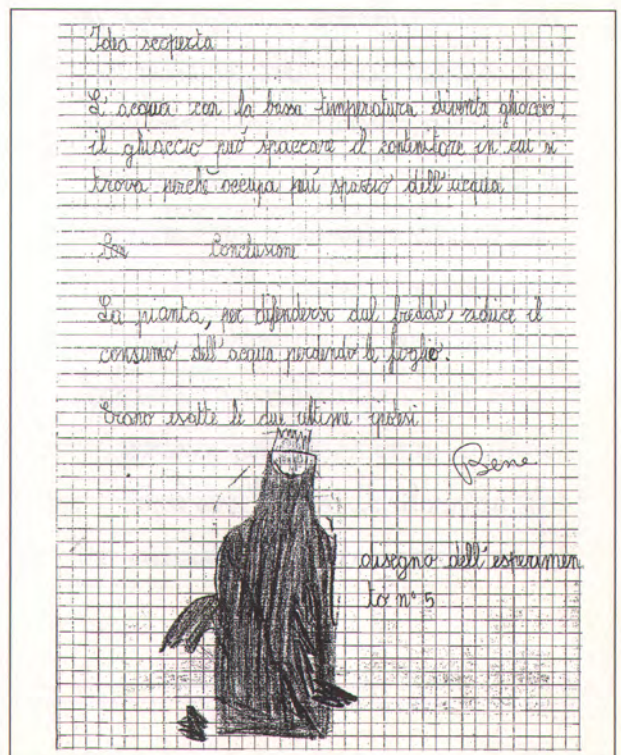 Idea scoperta
L'acqua con la bassa temperatura diventa ghiaccio,
il ghiaccio può spaccare il contenitore in cui si
trova perché occupa più spazio dell'acqua
Con Conclusione
La pianta, per difendersi dal freddo, riduce il
consumo dell'acqua perdendo le foglie.
Erano esatte le due ultime ipotesi
Bene
disegno dell'esperimen
to n° 5